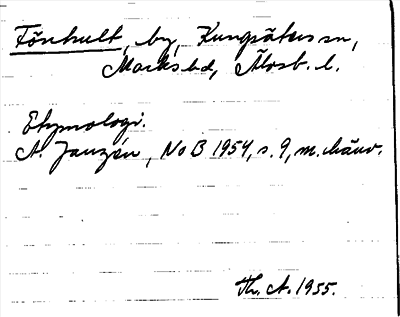 Fönhult, by, Kungsäters sn,
Marks hd, Älvsb. l.
Etymologi.
A. Janzén, NoB 1954, s. 9, m. hänv.
Th. A. 1955.